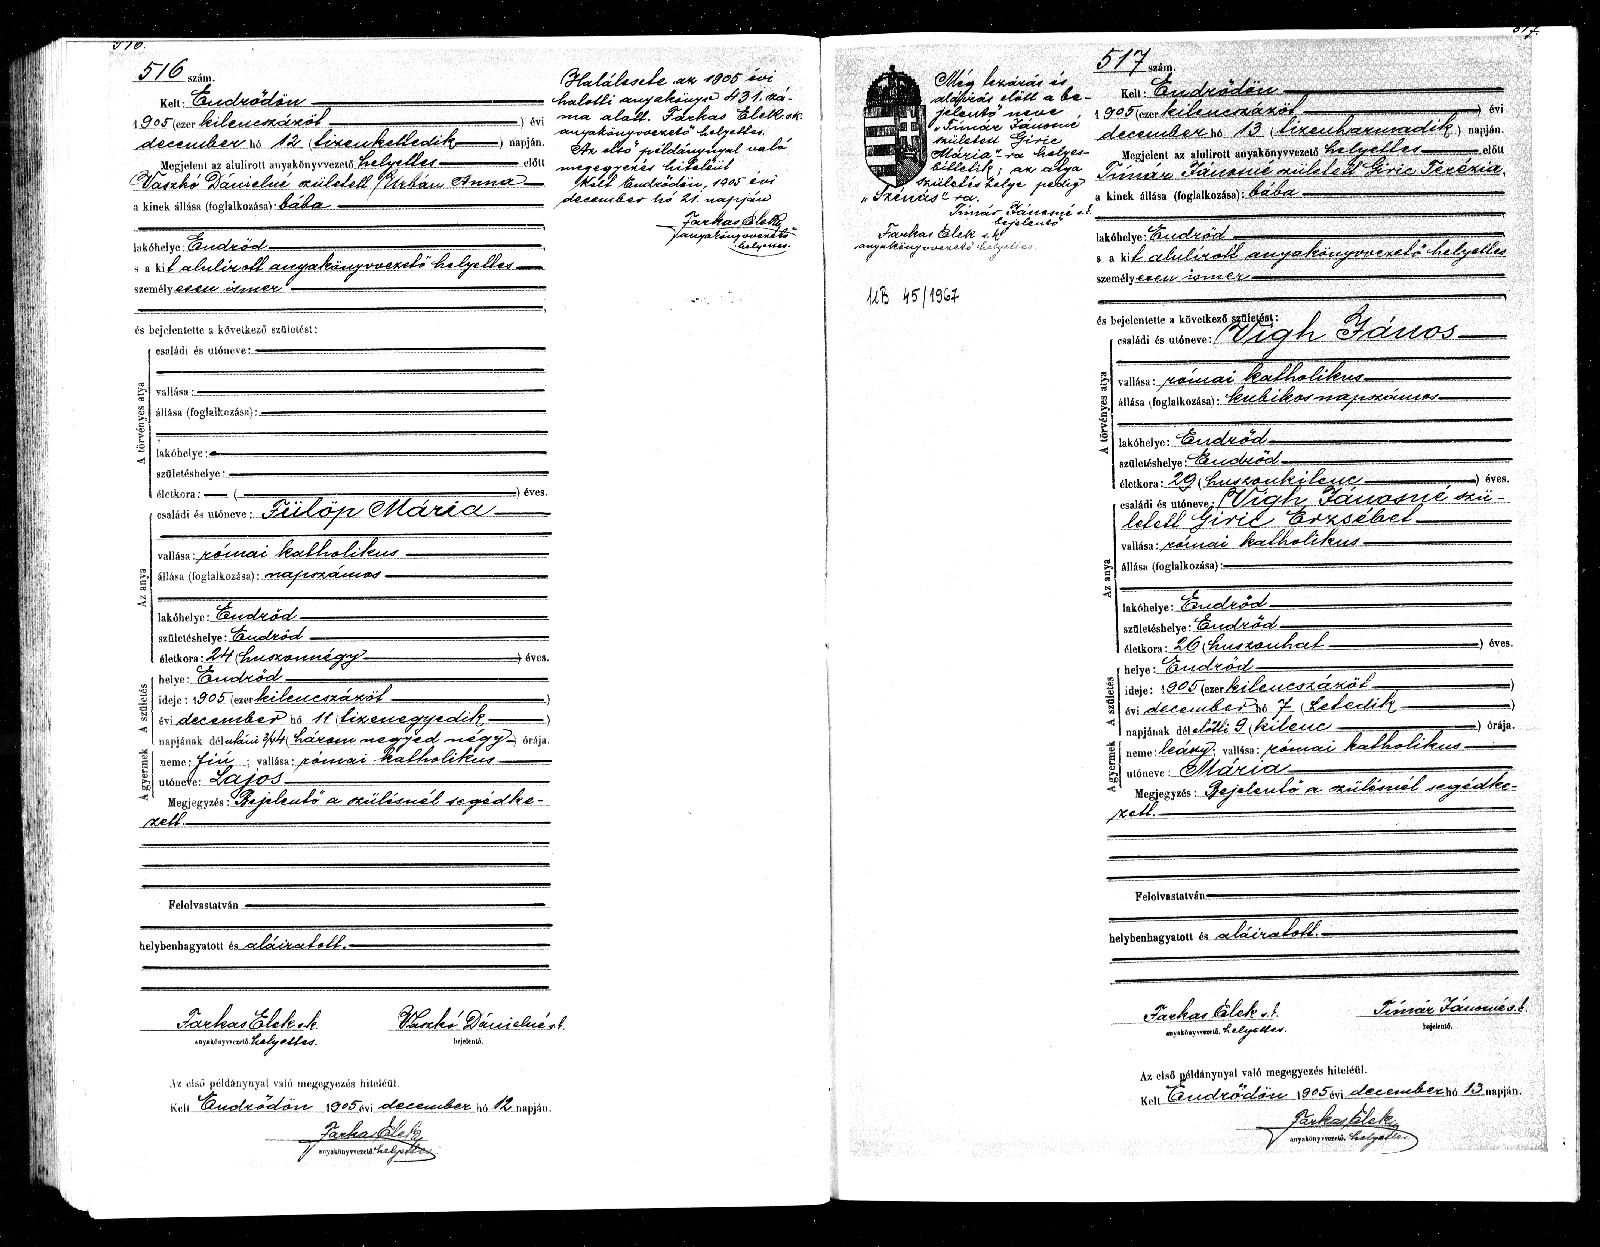 516.
516 szám.
Kelt: Endrődön
1905 (ezer kilencszázöt) évi
december hó 12 (tizenkettedik) napján.
Megjelent az alulirott anyakönyvvezető helyettes előtt
Vaszkó Dánielné született Urbán Anna
a kinek állása (foglalkozása): bába
lakóhelye: Endrőd
s a kit alulírott anyakönyvvezető helyettes
személyesen ismer
és bejelentette a következő születést:
A törvényes atya
családi és utóneve:
vallása:
állása (foglalkozása):
lakóhelye:
születéshelye:
életkora: — ( ) éves.
Az anya
családi és utóneve: Fülöp Mária
vallása: római katholikus
állása (foglalkozása): napszámos
lakóhelye: Endrőd
születéshelye: Endrőd
életkora: 24 (huszonnégy) éves.
A születés
helye: Endrőd
ideje: 1905 (ezer kilencszázöt)
évi december hó 11 (tizenegyedik)
napjának délutáni 3/44 (három negyed négy) órája.
A gyermek
neme: fiú; vallása: római katholikus
utóneve: Lajos
Megjegyzés: Bejelentő a szülésnél segédke-
zett.
Felolvastatván
helybenhagyatott és aláiratott.
Farkas Elek sk. Vaszkó Dánielné s.k.
anyakönyvvezető helyettes. bejelentő.
Az első példánynyal való megegyezés hiteléül.
Kelt Endrődön 1905 évi december hó 12 napján.
Farkas Elek
anyakönyvvezető helyettes
Halálesete az 1905 évi
halotti anyakönyv 431. szá-
ma alatt. Farkas Elek sk.
anyakönyvvezető helyettes.
Az első példánynyal való
megegyezés hiteléül
Kelt Endrődön, 1905 évi
december hó 21. napján
Farkas Elek
anyakönyvvezető
helyettes.
517.
Még lezárás és
aláírás előtt a be-
jelentő neve
"Tímár Jánosné
született Giric
Mária"-ra helyes-
bíttetik; az atya
születés helye pedig
"Szénás"-ra.
Tímár Jánosné s.k.
bejelentő
Farkas Elek s.k.
anyakönyvvezető helyettes.
UB 45/1967
517 szám.
Kelt: Endrődön
1905 (ezer kilencszázöt) évi
december hó 13 (tizenharmadik) napján.
Megjelent az alulirott anyakönyvvezető helyettes előtt
Tímár Jánosné született Giric Terézia
a kinek állása (foglalkozása): bába
lakóhelye: Endrőd
s a kit alulírott anyakönyvvezető helyettes
személyesen ismer
és bejelentette a következő születést:
A törvényes atya
családi és utóneve: Vigh János
vallása: római katholikus
állása (foglalkozása): kubikos napszámos
lakóhelye: Endrőd
születéshelye: Endrőd
életkora: 29 (huszonkilenc) éves.
Az anya
családi és utóneve: Vigh Jánosné szü-
letett Giric Erzsébet
vallása: római katholikus
állása (foglalkozása):
lakóhelye: Endrőd
születéshelye: Endrőd
életkora: 26 (huszonhat) éves.
A születés
helye: Endrőd
ideje: 1905 (ezer kilencszázöt)
évi december hó 7 (hetedik)
napjának délelőtti 9 (kilenc) órája.
A gyermek
neme: leány; vallása: római katholikus
utóneve: Mária
Megjegyzés: Bejelentő a szülésnél segédke-
zett.
Felolvastatván
helybenhagyatott és aláiratott.
Farkas Elek s.k. Tímár Jánosné s.k.
anyakönyvvezető. helyettes. bejelentő.
Az első példánynyal való megegyezés hiteléül.
Kelt Endrődön 1905 évi december hó 13 napján.
Farkas Elek
anyakönyvvezető. helyettes.